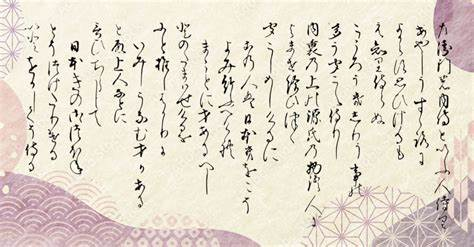 左衛門の内侍といふ人侍り
あやしうすゝろに
よからす思ひけるも
え知り侍らぬ
こころうきしりうことの
おほう聞こえ侍りし
内裏の上の源氏の物語人に
よませ給ひつゝ
きこしめしけるに
この人は日本紀をこそ
よみ給ふへけれ
まことに才あるへし
とのたまはせけるを
ふと推しはかりに
いみしうなむ才かある
と殿上人なとに
言ひちらして
日本きの御つほね
とそつけたりける
いとをかしくそ侍る